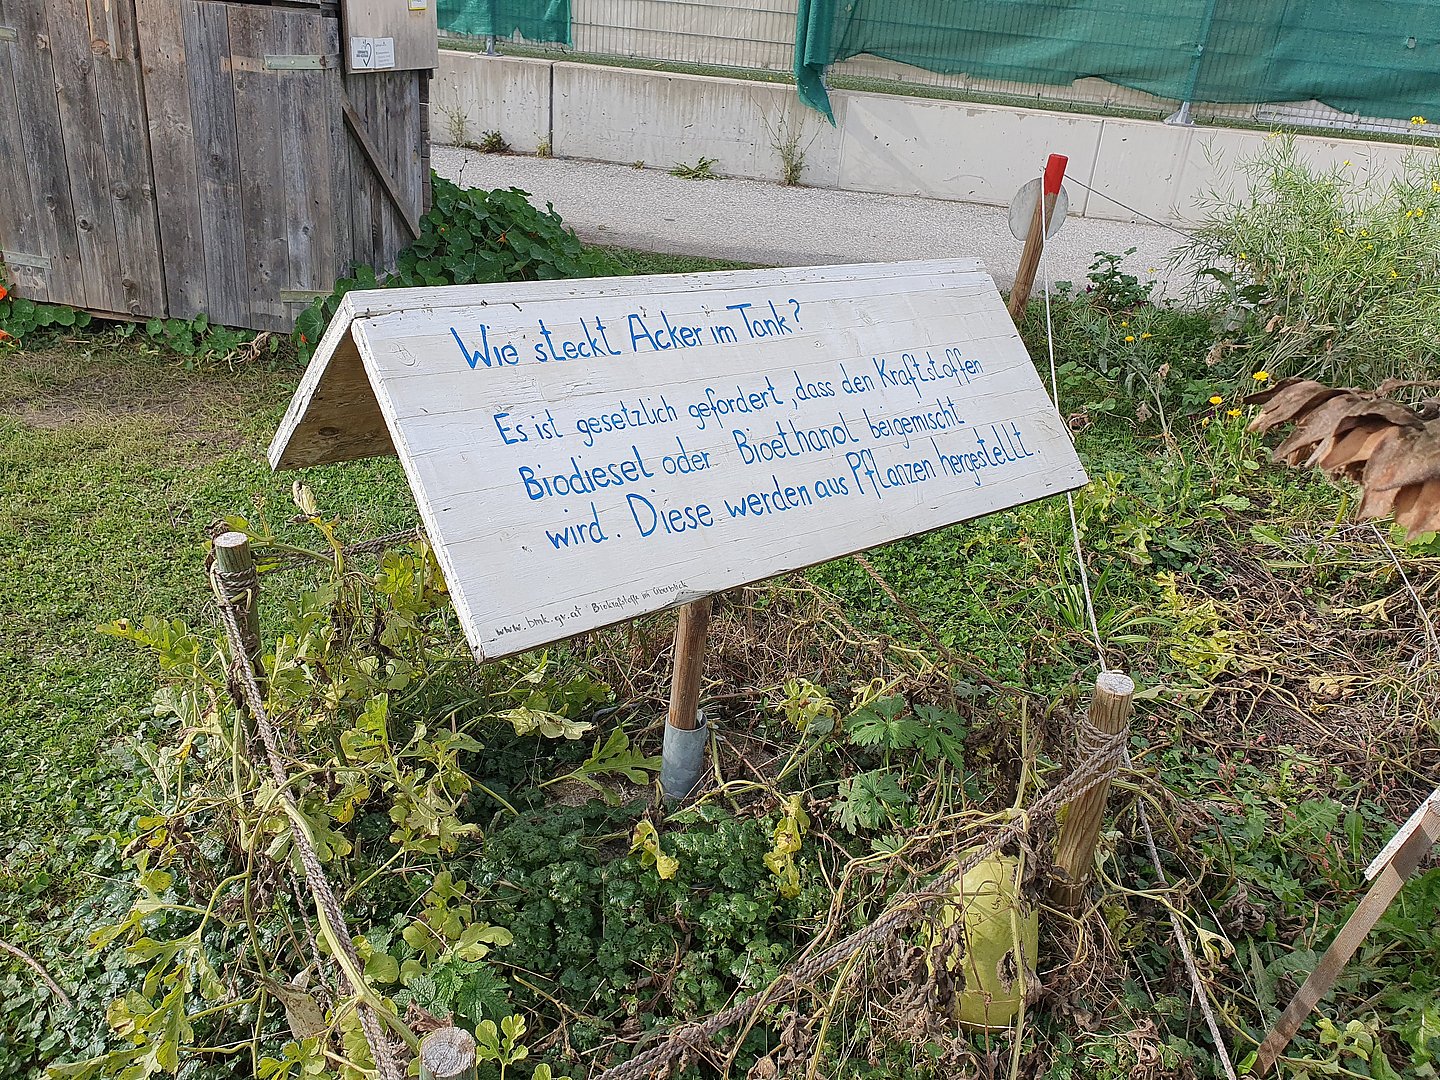 Wie steckt Acker im Tank?
Es ist gesetzlich gefordert, dass den Kraftstoffen
Biodiesel oder Bioethanol beigemischt
wird. Diese werden aus Pflanzen hergestellt.
www.bmk.gv.at: Biokraftstoffe im Überblick